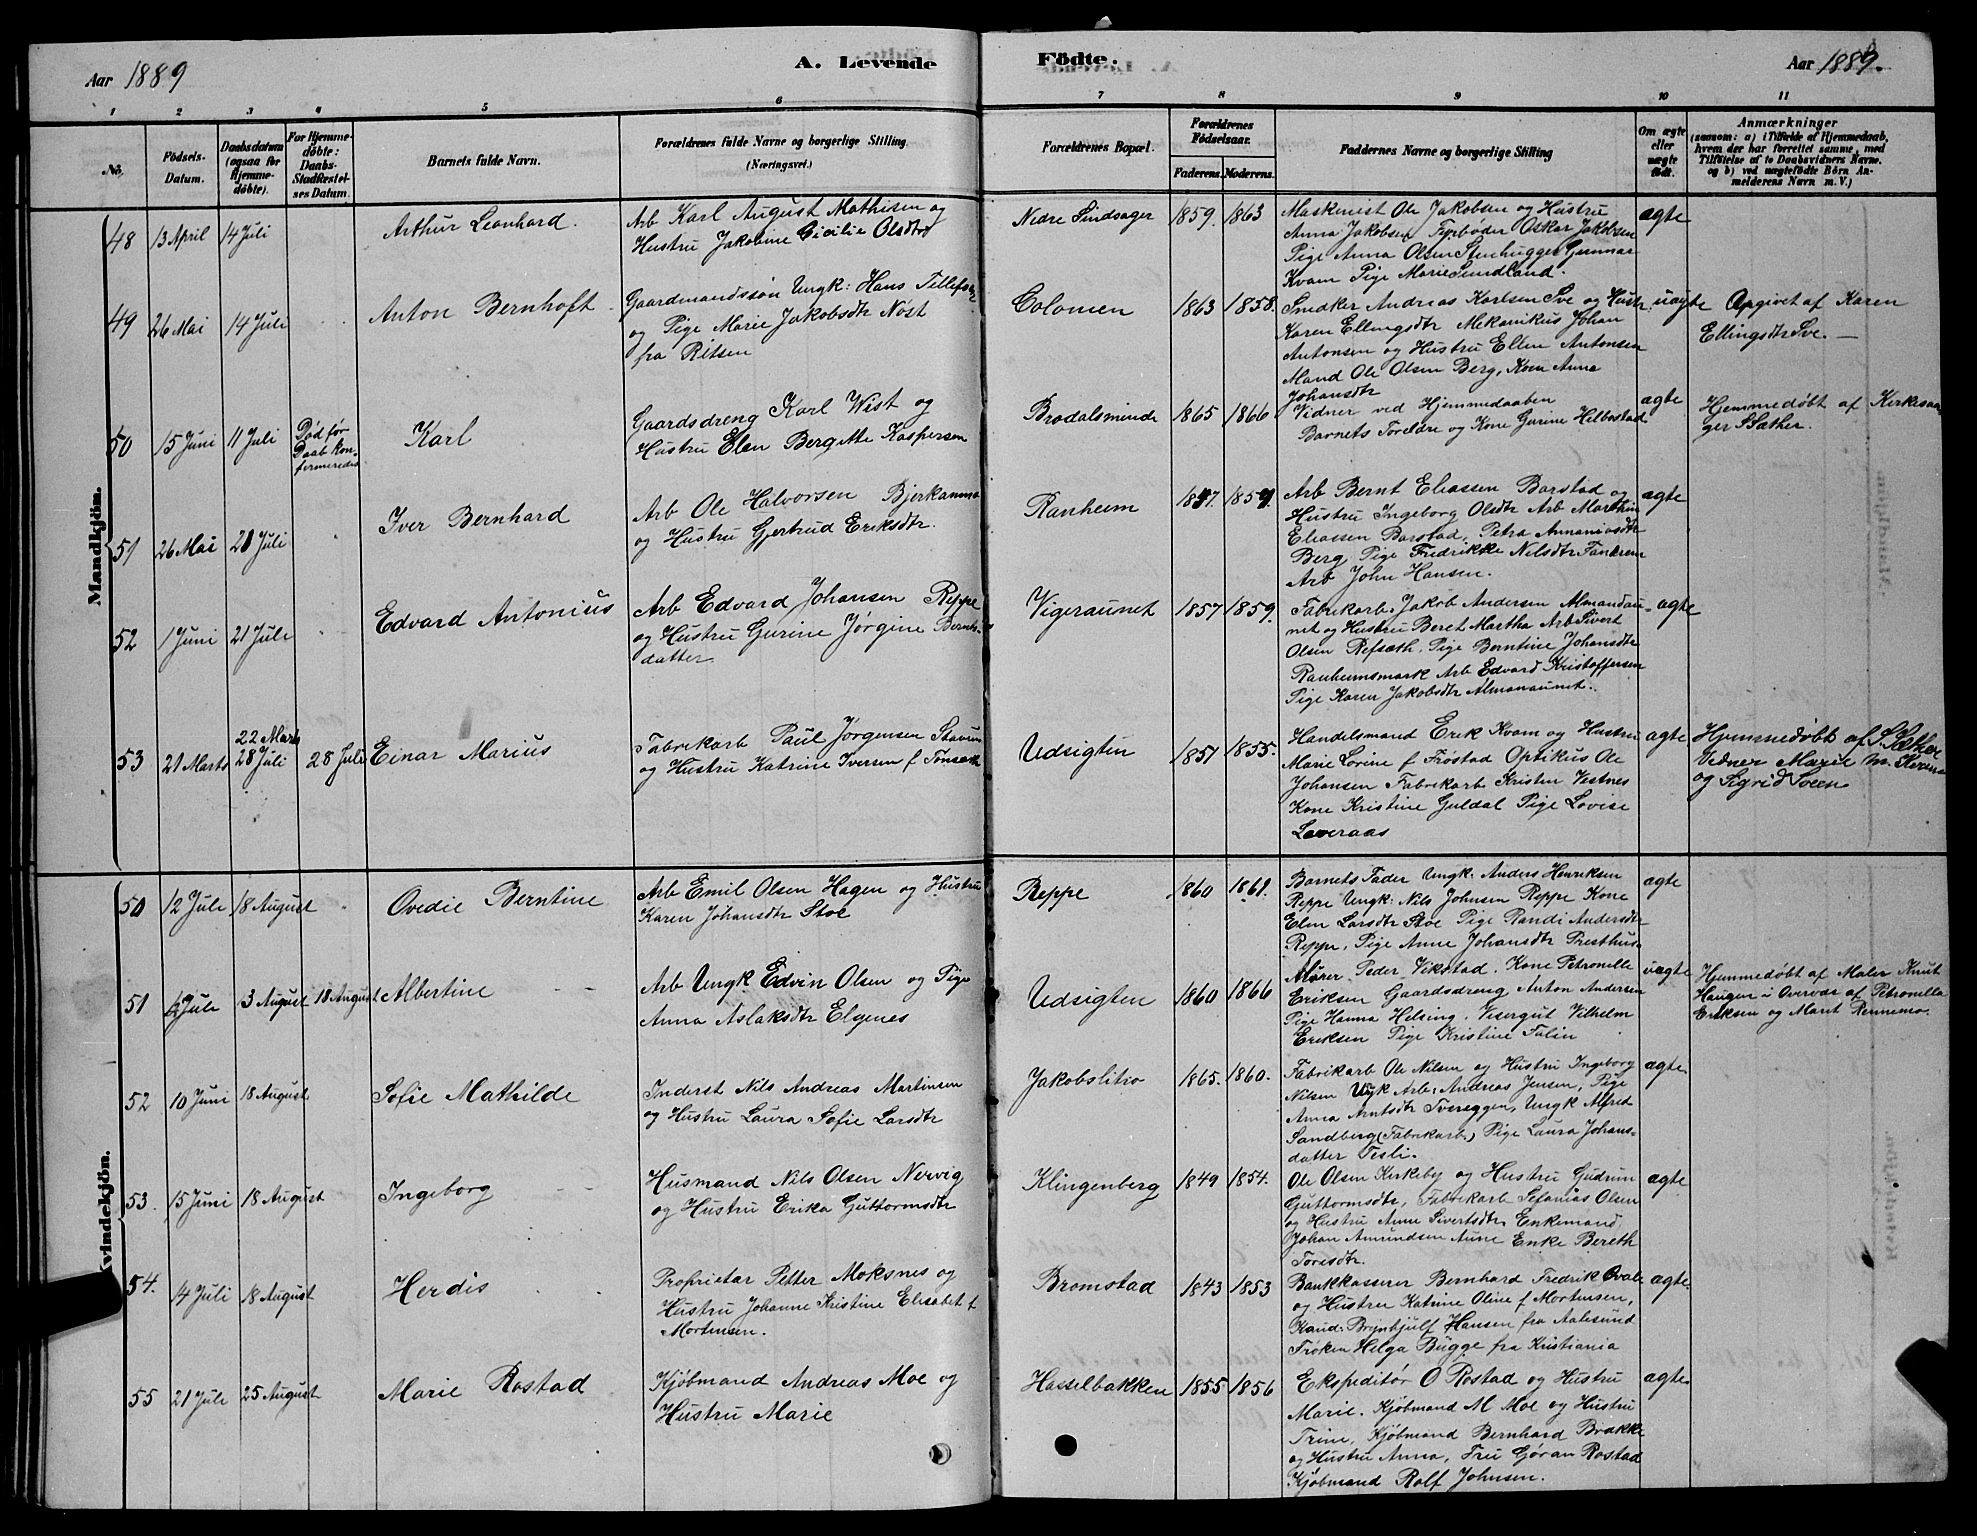 Aar 1889
A. Levende
Födte.
Aar 1889.
1 2 3 4 5 6 7 8 9 10 11
No.
Födsels-Datum.
Daabsdatum (ogsaa for Hjemme-döbte).
For Hjemme-döbte: Daabs-Stadfæstel-ses Datum.
Barnets fulde Navn.
Forældrenes fulde Navne og borgerlige Stilling
(Næringsvei.)
Forældrenes Bopæl.
Forældrenes Födselsaar.
Faderens. Moderens.
Faddernes Navne og borgerlige Stilling
Om ægte eller uægte födt.
Anmærkninger
(saasom: a) i Tilfælde af Hjemmedaab,
hvem der har forrettet samme, med
Tilföielse af to Daabsvidners Navne.
og b) ved uægtefödte Börn An-
melderens Navn m. V.)
Mandkjön.
48 13 April 14 Juli Arthur Leonhard.
Arb Karl August Mathisen og
Hustru Jakobine Cicilie Olsdtr
Nedre Sindsager 1859. 1863
Maskenist Ole Jakobsen og Hustru
Anna Jakobsen Fyrbøder Oskar Jakobsen
Pige Anna Olsen Stenhugger Gunnar
Kvam Pige Marie Sundland.
ægte
49 26 Mai 14 Juli Anton Bernhoft
Gaardmandssøn Ungk: Hans Tillefsen
og Pige Marie Jakobsdtr Nøst
fra Ritsen
Colonien 1863 1858.
Snedker Andreas Karlsen Sve og Hustr
Karen Ellingsdtr Mekanikus Johan
Antonsen og Hustru Ellen Antonsen
Mand Ole Olsen Berg, Kone Anna
Johansdtr
uægte
Opgivet af Karen
Ellingsdtr Sve.
50 15 Juni 11 Juli
Død før
Daab kon-
fermeredes
Karl
Gaardsdreng Karl Wist og
Hustru Elen Bergitte Kaspersen
Brodalsminde 1865 1866
Vidner ved Hjemmedaaben
Barnets Foreldre og Kone Gurine Helbostad
ægte
Hjemmedøbt af Kirkesan
ger Sæther.
51 26 Mai 21 Juli Iver Bernhard
Arb Ole Halvorsen Bjerkanmo
og Hustru Gjertrud Eriksdtr.
Ranheim 1857. 1859.
Arb Bernt Eliassen Barstad og
Hustru Ingeborg Olsdtr Arb Marthin
Eliassen Barstad, Petra Annaniasdtr
Berg Pige Fredrikke Nilsdtr Fanrem
Arb John Hansen.
ægte
52 1 Juni 21 Juli Edvard Antonius
Arb Edvard Johansen Reppe
og Hustru Gurine Jørgine Bernts-
datter
Vigeraunet 1857 1859.
Fabrikarb. Jakob Andersen Almandau-
net og Hustru Beret Martha Arb Sivert
Olsen Refsæth. Pige Berntine Johansdtr
Ranheimsmark Arb Edvard Kristoffersen
Pige Karen Jakobsdtr Almanaunet.
ægte
53 21 Marts
22 Marts
28 Juli
28 Juli Einar Marius
Fabrikarb Paul Jørgensen Stavein
og Hustru Katrine Iversen f Tønseth
Udsigten 1851 1855.
Handelsmand Erik Kvam og Hustru
Marie Lorine f Frøstad Optikus Ole
Johansen Fabrikarb Kristen Vestnes
Kone Kristine Guldal Pige Lovise
Leveraas
ægte
Hjemmedøbt af S. Sæther
Vidner Marie m. Kvam
og Sigrid Sveen
Kvindekjön.
50 12 Juli 18 August Ovedie Berntine
Arb Emil Olsen Hagen og Hustru
Karen Johansdtr Stoe
Reppe 1860 1861.
Barnets Fader Ungk. Anders Henriksen
Reppe Ungk: Nils Johnsen Reppe Kone
Elen Larsdtr Stoe Pige Randi Andersdtr
Reppe, Pige Anne Johansdtr Presthus.
ægte
51 6 Juli 3 August 18 August Albertine
Arb Ungk Edvin Olsen og Pige
Anna Aslaksdtr Elgenes
Udsigten 1860 1866
Murer Peder Vikstad. Kone Petronelle
Eriksen Gaardsdreng Anton Andersen
Pige Hanna Helsing. Visergut Vilhelm
Eriksen Pige Kristine Falin
uægte
Hjemmedøbt af Maler Knut
Haugen i Overvær af Petronella
Eriksen og Maret Rennemo.
52 10 Juni 18 August Sofie Mathilde
Inderst Nils Andreas Martinsen
og Hustru Laura Sofie Larsdtr
Jakobslitro 1865. 1860.
Fabrikarb Ole Nilsen og Hustru Ingeborg
Nilsen Ungk Arb: Andreas Jensen, Pige
Anna Arntsdtr Tvereggen, Ungk Alfred
Sandberg (Fabrikarb.) Pige Laura Johans-
datter Tesli.
ægte
53. 15 Juni 18 August Ingeborg
Husmand Nils Olsen Nervig
og Hustru Erika Guttormsdtr
Klingenberg 1849 1854.
Ole Olsen Kirkeby og Hustru Gudrun
Guttormsdtr, Fabrikarb Sefanias Olsen
og Hustru Anne Sivertsdtr Enkemand
Johan Amundsen Aune Enke Bereth
Toresdtr.
ægte
54. 14 Juli 18 August Herdis
Proprietær Petter Moksnes og
Hustru Johanne Kristine Elisabet f
Mortensen.
Bromstad 1843 1853
Bankkasserer Bernhard Fredrik Qvale
og Hustru Katrine Oline f Mortensen,
Kand. Brynhjulf Hansen fra Aalesund
Frøken Helga Bugge fra Kristiania
ægte.
55 21 Juli 25 August Marie Rostad
Kjøbmand Andreas Moe og
Hustru Marie
Hasselbakken 1855 1856
Ekspeditør O Rostad og Hustru
Marie. Kjøbmand M Moe og Hustru
Trine, Kjøbmand Bernhard Brække
og Hustru Anna, Fru Gøran Rostad
Kjøbmand Rolf Johnsen.
ægte.